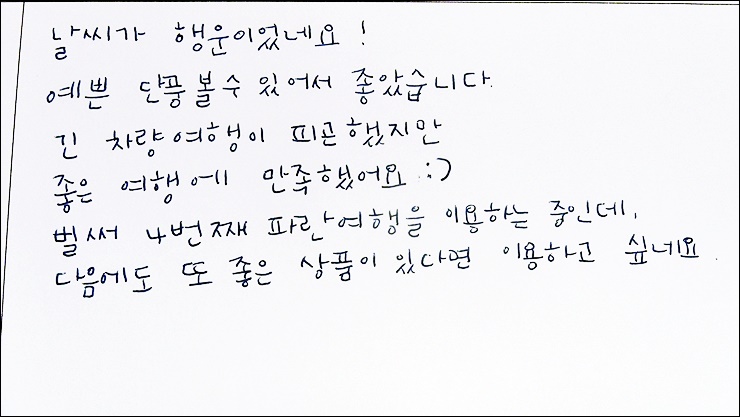 날씨가 행운이었네요!
예쁜 단풍 볼 수 있어서 좋았습니다.
긴 차량여행이 피곤했지만
좋은 여행에 만족했어요 :)
벌써 4번째 파란여행을 이용하는 중인데,
다음에도 또 좋은 상품이 있다면 이용하고 싶네요.